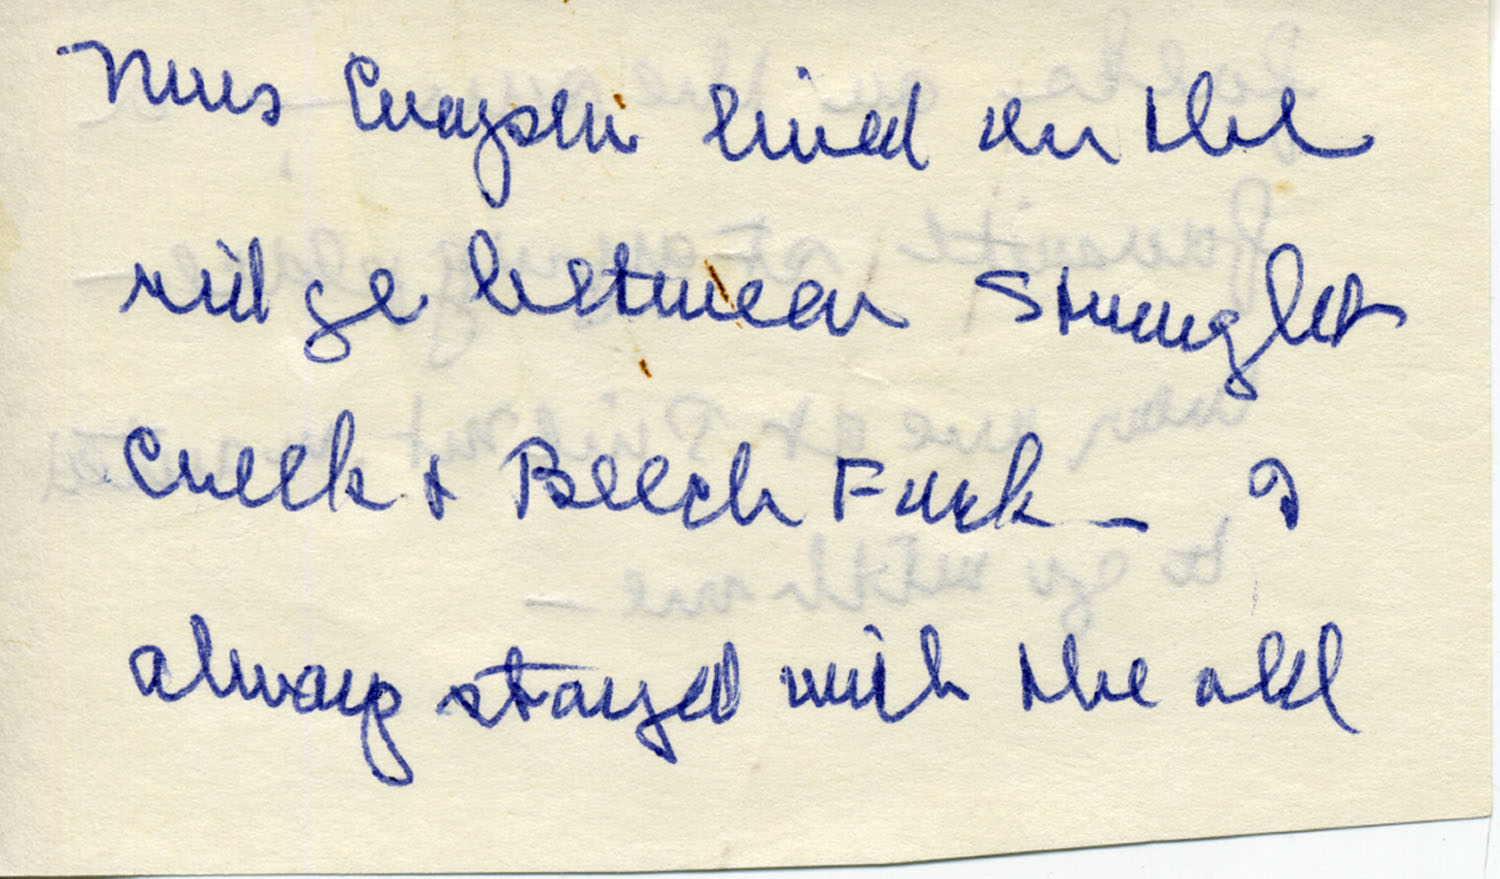 lived on the
ridge between Straight
Creek & Beech Fork — I
always stayed with the old